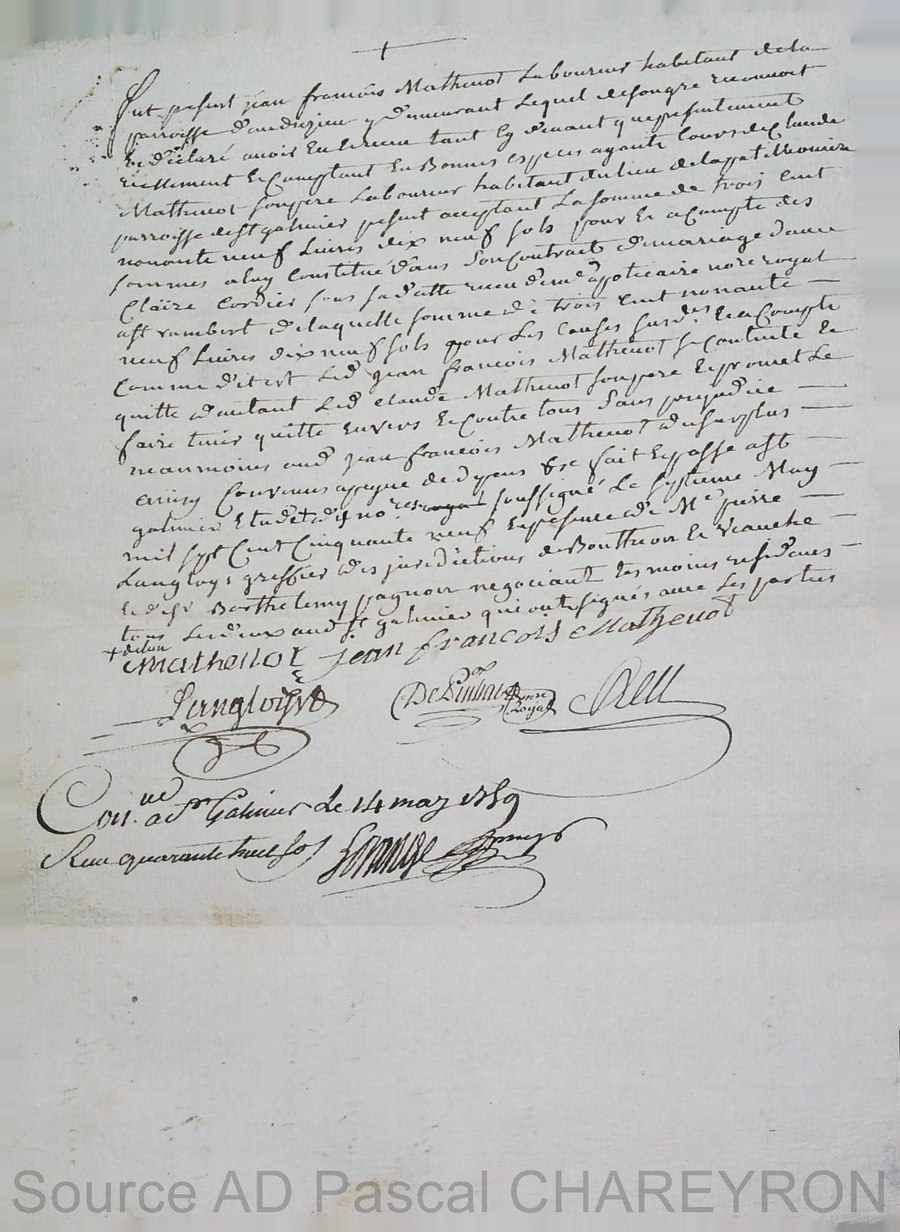 +
Fut present jean francois Mathenot Laboureur habitant de la
parroisse d'andrezieu y demeurant Lequel de son gre reconnoit
et declaré avoir Eu Et receu tant cy devant que presentement
reellement Et comptant En Bonnes especes ayants Cours de Claude
Mathenot son pere Laboureur habitant du lieu de la
parroisse de st galmier present acceptant La somme de trois Cent
nonante neuf Livres dix neuf sols pour Et a Compte des
sommes a luy Constitué dans Son Contract de mariage avec
Claire Cordier sous sa datte receu de me apoticaire nore royal
a st rambert de laquelle somme de trois Cent nonante
neuf Livres dix neuf sols pour Les Causes susdes Et a Compte
Comme dit est Led jean francois Mathenot se Contente Et
quitte d'autant Led claude Mathenot son pere Et promet Le
faire tenir quitte envers Et Contre tous Sans prejudice
neanmoins aud jean francois Mathenot du surplus
ainsy Convenus a peyne de depens &c fait Et passé a st
galmier Etude des nores soussigné Le septieme May
mil sept Cent Cinquante neuf En presence de Me pierre
Langloys greffier des juridictions de Boutheon Et Veauche
Et de sr Barthelemy pagnon negociant tesmoins residents
tous Les deux aud st galmier qui ont signés avec Les parties
Mathenot jean francois Mathenot
Langloys
royal
Con.ué a St Galmier Le 14 may 1759
Reçu quarante huit sols
Source AD Pascal CHAREYRON